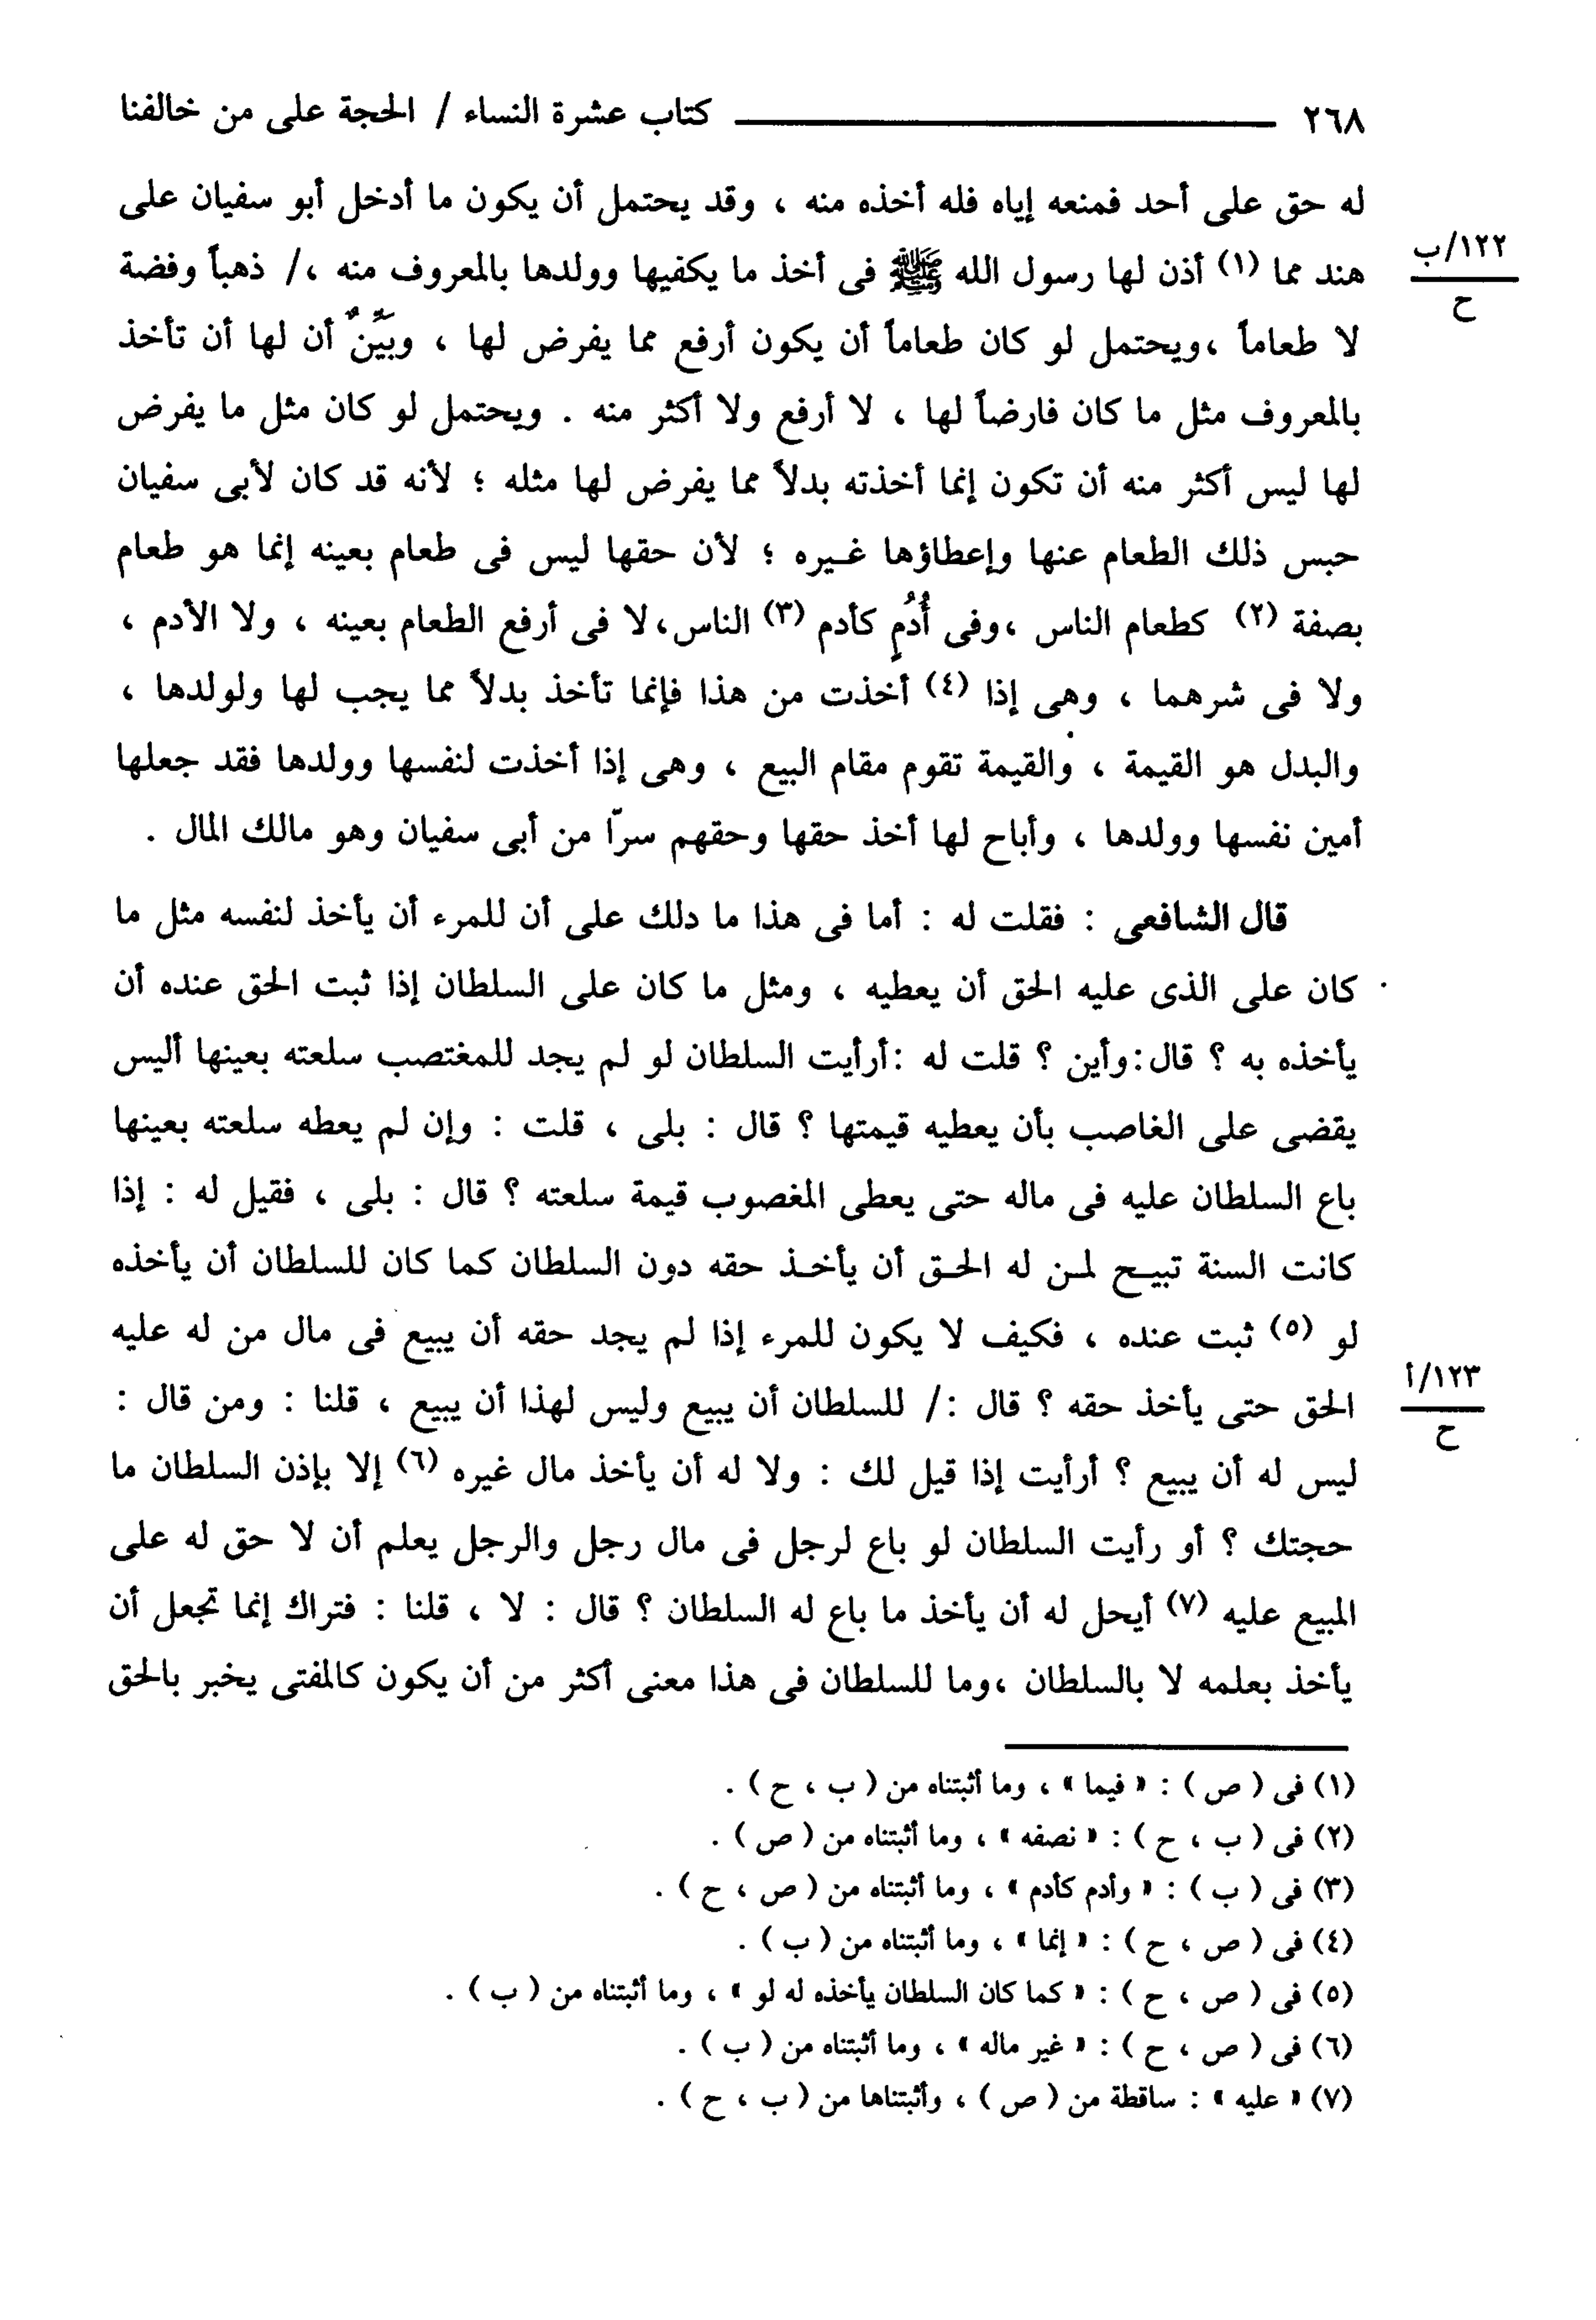 ٢٦٨ كتاب عشرة النساء / الحجة على من خالفنا
له حق على أحد فمنعه إياه فله أخذه منه ، وقد يحتمل أن يكون ما أدخل أبو سفيان على
١٢٢/ب
هند مما (١) أذن لها رسول الله ﷺ فى أخذ ما يكفيها وولدها بالمعروف منه ،/ ذهباً وفضة
ح
لا طعاماً ،ويحتمل لو كان طعاماً أن يكون أرفع مما يفرض لها ، وبَيِّنٌ أن لها أن تأخذ
بالمعروف مثل ما كان فارضاً لها ، لا أرفع ولا أكثر منه . ويحتمل لو كان مثل ما يفرض
لها ليس أكثر منه أن تكون إنما أخذته بدلاً مما يفرض لها مثله ؛ لأنه قد كان لأبى سفيان
حبس ذلك الطعام عنها وإعطاؤها غـيره ؛ لأن حقها ليس فى طعام بعينه إنما هو طعام
بصفة (٢) كطعام الناس ،وفى أُدُمٍ كأدم (٣) الناس،لا فى أرفع الطعام بعينه ، ولا الأدم ،
ولا فى شرهما ، وهى إذا (٤) أخذت من هذا فإنما تأخذ بدلاً مما يجب لها ولولدها ،
والبدل هو القيمة ، والقيمة تقوم مقام البيع ، وهى إذا أخذت لنفسها وولدها فقد جعلها
أمين نفسها وولدها ، وأباح لها أخذ حقها وحقهم سرّا من أبى سفيان وهو مالك المال .
قال الشافعى : فقلت له : أما فى هذا ما دلك على أن للمرء أن يأخذ لنفسه مثل ما
كان على الذى عليه الحق أن يعطيه ، ومثل ما كان على السلطان إذا ثبت الحق عنده أن
يأخذه به ؟ قال:وأين ؟ قلت له :أرأيت السلطان لو لم يجد للمغتصب سلعته بعينها أليس
يقضى على الغاصب بأن يعطيه قيمتها ؟ قال : بلى ، قلت : وإن لم يعطه سلعته بعينها
باع السلطان عليه فى ماله حتى يعطى المغصوب قيمة سلعته ؟ قال : بلى ، فقيل له : إذا
كانت السنة تبيـح لمـن له الحـق أن يأخـذ حقه دون السلطان كما كان للسلطان أن يأخذه
لو (٥) ثبت عنده ، فكيف لا يكون للمرء إذا لم يجد حقه أن يبيع فى مال من له عليه
١٢٣/أ
الحق حتى يأخذ حقه ؟ قال :/ للسلطان أن يبيع وليس لهذا أن يبيع ، قلنا : ومن قال :
ح
ليس له أن يبيع ؟ أرأيت إذا قيل لك : ولا له أن يأخذ مال غيره (٦) إلا بإذن السلطان ما
حجتك ؟ أو رأيت السلطان لو باع لرجل فى مال رجل والرجل يعلم أن لا حق له على
المبيع عليه (٧) أيحل له أن يأخذ ما باع له السلطان ؟ قال : لا ، قلنا : فتراك إنما تجعل أن
يأخذ بعلمه لا بالسلطان ،وما للسلطان فى هذا معنى أكثر من أن يكون كالمفتى يخبر بالحق
(١) فى ( ص ) : « فيما » ، وما أثبتناه من ( ب ، ح ) .
(٢) فى ( ب ، ح ) : « نصفه » ، وما أثبتناه من ( ص ) .
(٣) فى ( ب ) : « وأدم كأدم » ، وما أثبتناه من ( ص ، ح ) .
(٤) فى ( ص ، ح ) : « إنما » ، وما أثبتناه من ( ب ) .
(٥) فى ( ص ، ح ) : « كما كان السلطان يأخذه له لو » ، وما أثبتناه من ( ب ) .
(٦) فى ( ص ، ح ) : « غير ماله » ، وما أثبتناه من ( ب ) .
(٧) « عليه » : ساقطة من ( ص ) ، وأثبتناها من ( ب ، ح ) .